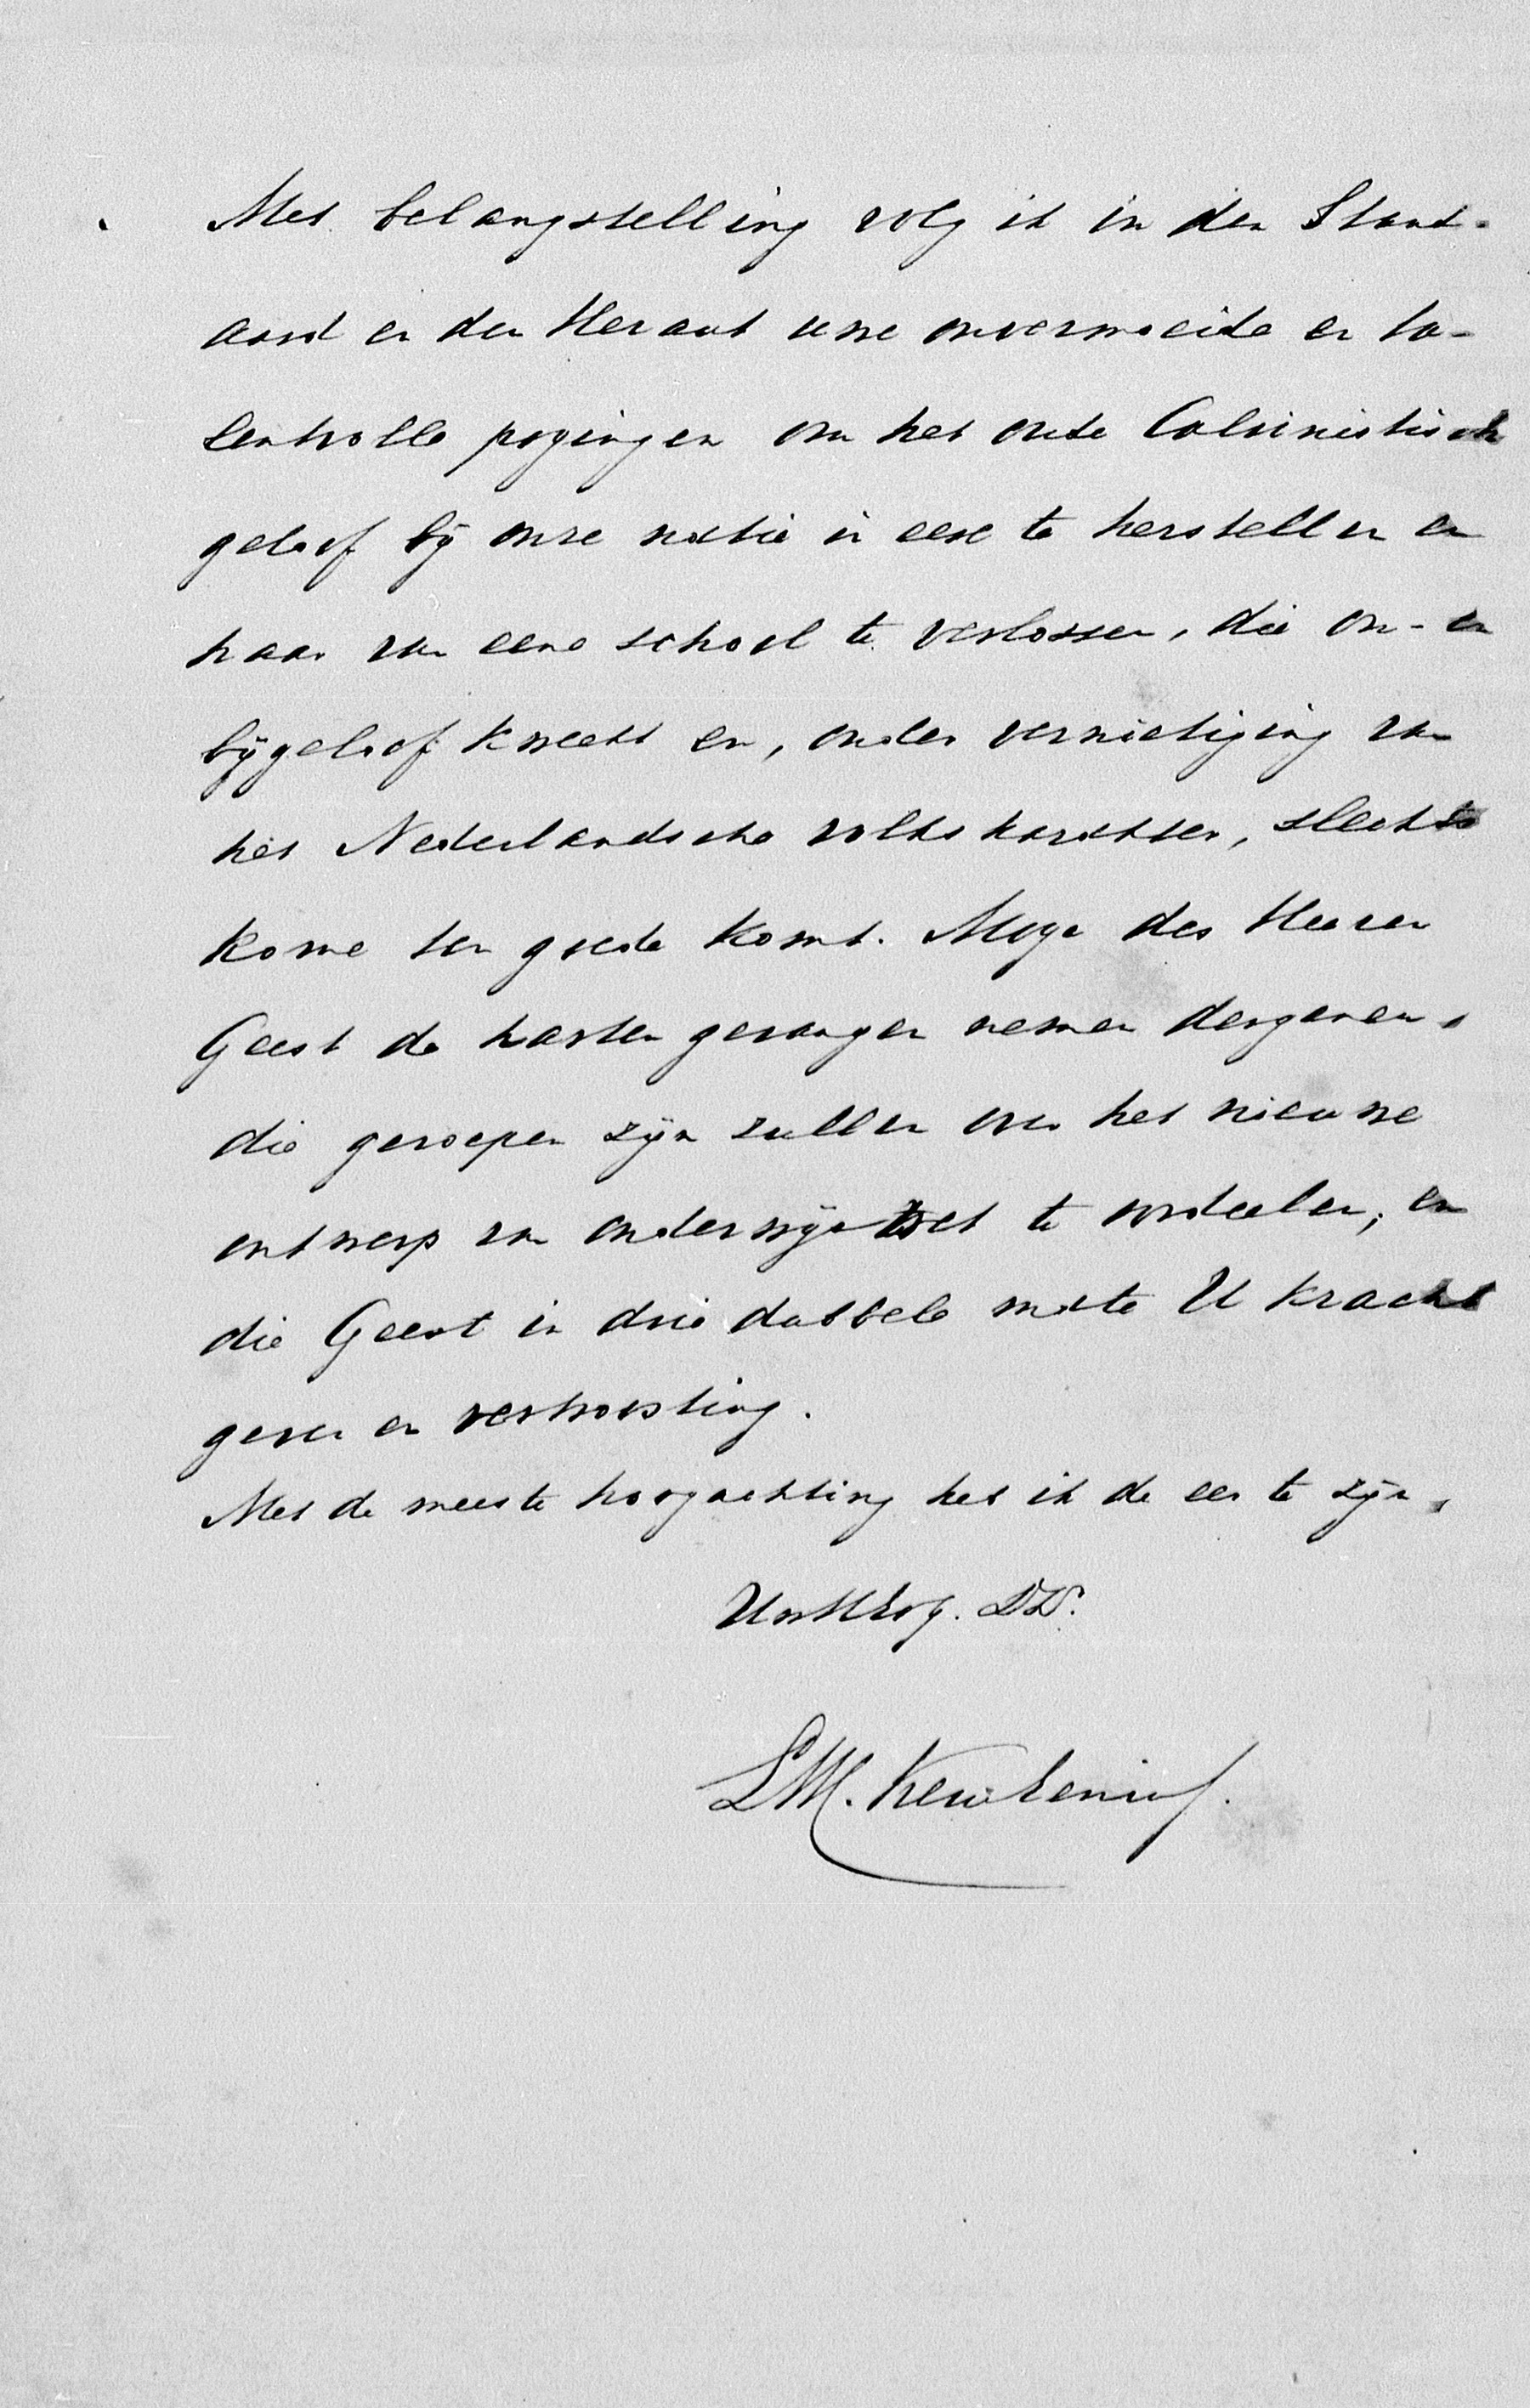 Met belangstelling volg ik in den Stand-
aard en den Heraut uwe onvermoeide en ta-
lentvolle pogingen om het oude Calvinistisch
geloof bij onze natie in eere te herstellen en
haar van eene school te verlossen, die on- en
bijgeloof kweekt en, onder vernietiging van
het Nederlandsche volkskarakter, slechts
Rome ten goede komt. Moge des Heeren
Geest de harten gevangen nemen dergenen,
die geroepen zijn zullen over het nieuwe
ontwerp van onderwijswet te oordeelen; en
die Geest in driedubbele mate U kracht
geven en vertroosting.
Met de meeste hoogachting heb ik de eer te zijn,
UwHEdg. DD.
LM. Keuchenius.